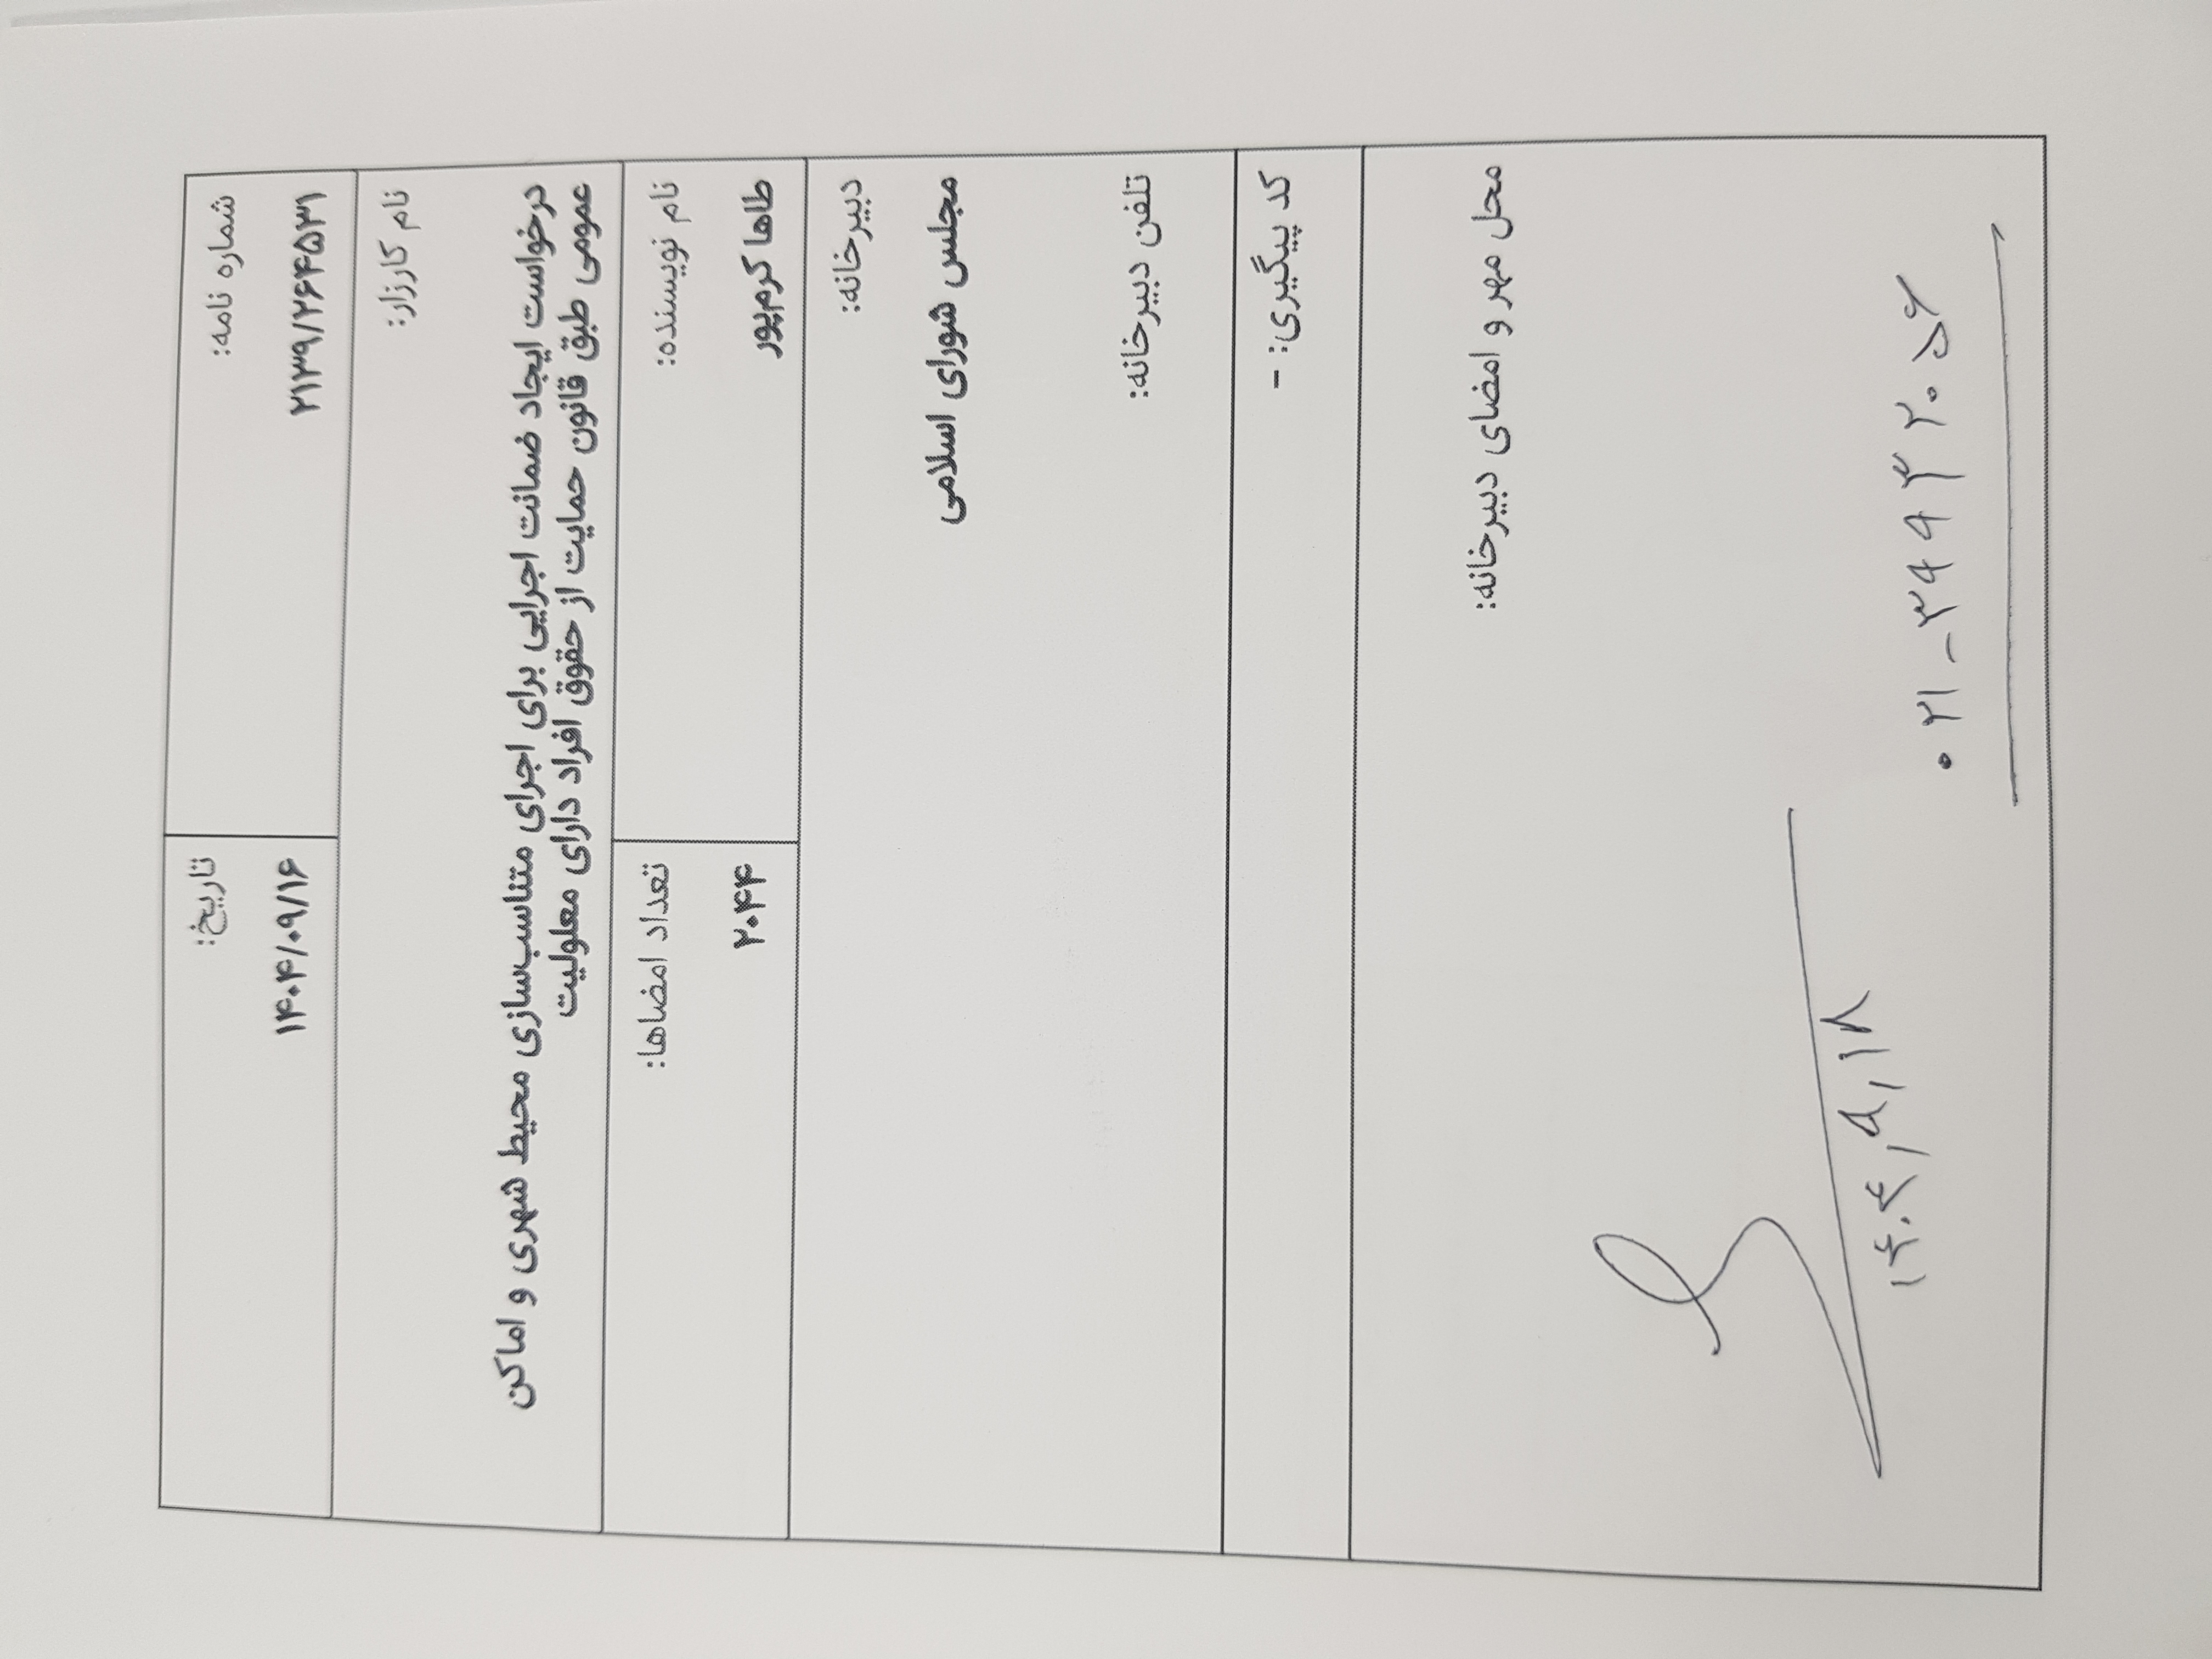 شماره نامه:
۲۱۳۹/۲۶۴۵۳۱
تاریخ:
۱۴۰۴/۰۹/۱۶
نام کارزار:
درخواست ایجاد ضمانت اجرایی برای اجرای متناسب‌سازی محیط شهری و اماکن
عمومی طبق قانون حمایت از حقوق افراد دارای معلولیت
نام نویسنده:
طاها کرم‌پور
تعداد امضاها:
۲۰۴۴
دبیرخانه:
مجلس شورای اسلامی
تلفن دبیرخانه:
کد پیگیری: -
محل مهر و امضای دبیرخانه:
۱۴۰۴/۹/۱۸